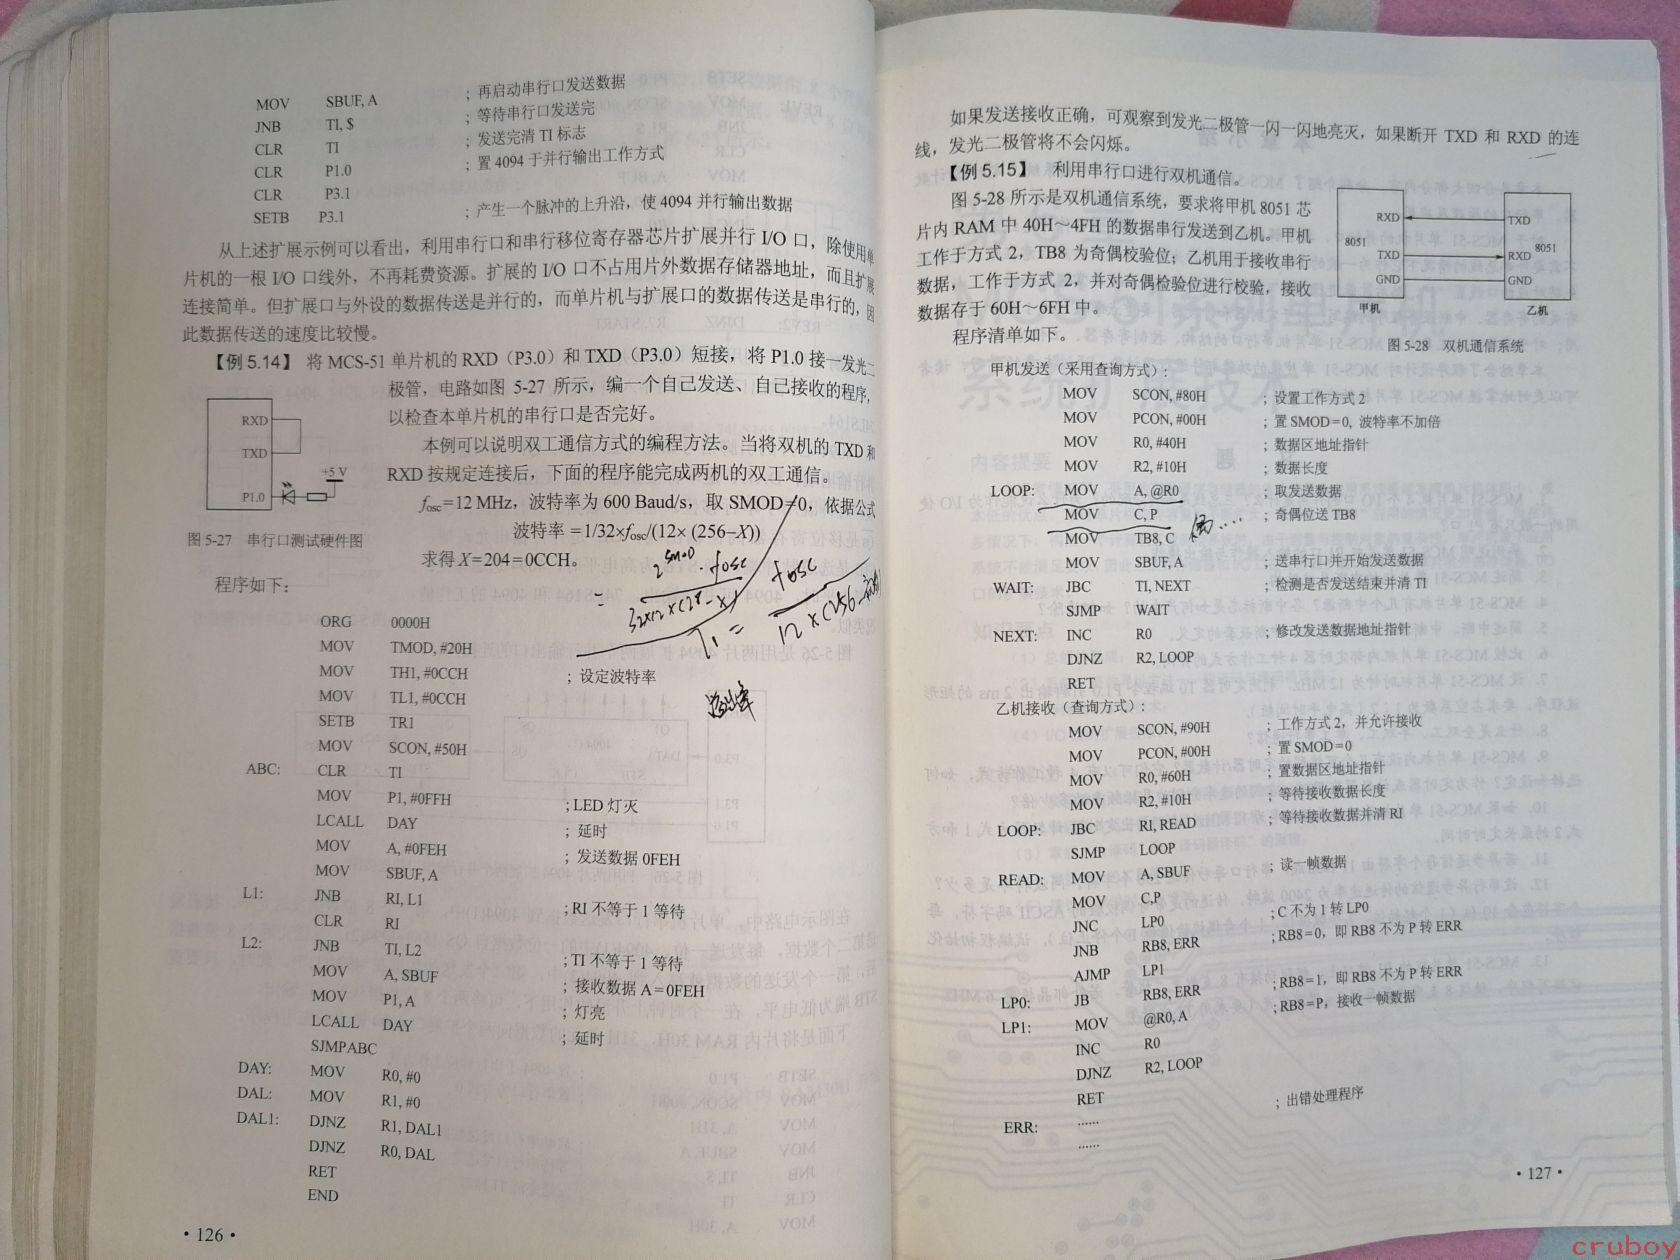 MOV SBUF, A ; 再启动串行口发送数据
JNB TI, $ ; 等待串行口发送完
CLR TI ; 发送完清 TI 标志
CLR P1.0 ; 置 4094 于并行输出工作方式
CLR P3.1
SETB P3.1 ; 产生一个脉冲的上升沿，使 4094 并行输出数据
从上述扩展示例可以看出，利用串行口和串行移位寄存器芯片扩展并行 I/O 口，除使用单
片机的一根 I/O 口线外，不再耗费资源。扩展的 I/O 口不占用片外数据存储器地址，而且扩展
连接简单。但扩展口与外设的数据传送是并行的，而单片机与扩展口的数据传送是串行的，因
此数据传送的速度比较慢。
【例 5.14】 将 MCS-51 单片机的 RXD（P3.0）和 TXD（P3.0）短接，将 P1.0 接一发光二
极管，电路如图 5-27 所示，编一个自己发送、自己接收的程序，
以检查本单片机的串行口是否完好。
本例可以说明双工通信方式的编程方法。当将双机的 TXD 和
RXD 按规定连接后，下面的程序能完成两机的双工通信。
fosc=12 MHz，波特率为 600 Baud/s，取 SMOD=0，依据公式
波特率 =1/32×fosc/(12× (256–X))
求得 X=204=0CCH。
RXD
TXD
P1.0
+5 V
图 5-27 串行口测试硬件图
= 2^SMOD · fosc
32×12×(2⁸-x)
T1 = fosc
程序如下：
ORG 0000H
MOV TMOD, #20H
MOV TH1, #0CCH ; 设定波特率
MOV TL1, #0CCH
SETB TR1
MOV SCON, #50H
ABC: CLR TI
MOV P1, #0FFH ;LED 灯灭
LCALL DAY ; 延时
MOV A, #0FEH ; 发送数据 0FEH
MOV SBUF, A
L1: JNB RI, L1 ;RI 不等于 1 等待
CLR RI
L2: JNB TI, L2 ;TI 不等于 1 等待
MOV A, SBUF ; 接收数据 A=0FEH
MOV P1, A ; 灯亮
LCALL DAY ; 延时
SJMPABC
DAY: MOV R0, #0
DAL: MOV R1, #0
DAL1: DJNZ R1, DAL1
DJNZ R0, DAL
RET
END
· 126 ·
如果发送接收正确，可观察到发光二极管一闪一闪地亮灭，如果断开 TXD 和 RXD 的连
线，发光二极管将不会闪烁。
【例 5.15】 利用串行口进行双机通信。
图 5-28 所示是双机通信系统，要求将甲机 8051 芯
片内 RAM 中 40H～4FH 的数据串行发送到乙机。甲机
工作于方式 2，TB8 为奇偶校验位；乙机用于接收串行
数据，工作于方式 2，并对奇偶检验位进行校验，接收
数据存于 60H～6FH 中。
程序清单如下。
RXD TXD
8051 8051
TXD RXD
GND GND
甲机 乙机
图 5-28 双机通信系统
甲机发送（采用查询方式）：
MOV SCON, #80H ; 设置工作方式 2
MOV PCON, #00H ; 置 SMOD=0, 波特率不加倍
MOV R0, #40H ; 数据区地址指针
MOV R2, #10H ; 数据长度
LOOP: MOV A, @R0 ; 取发送数据
MOV C, P ; 奇偶位送 TB8
MOV TB8, C
MOV SBUF, A ; 送串行口并开始发送数据
WAIT: JBC TI, NEXT ; 检测是否发送结束并清 TI
SJMP WAIT
NEXT: INC R0 ; 修改发送数据地址指针
DJNZ R2, LOOP
RET
乙机接收（查询方式）：
MOV SCON, #90H ; 工作方式 2，并允许接收
MOV PCON, #00H ; 置 SMOD=0
MOV R0, #60H ; 置数据区地址指针
MOV R2, #10H ; 等待接收数据长度
LOOP: JBC RI, READ ; 等待接收数据并清 RI
SJMP LOOP
READ: MOV A, SBUF ; 读一帧数据
MOV C,P
JNC LP0 ;C 不为 1 转 LP0
JNB RB8, ERR ;RB8=0，即 RB8 不为 P 转 ERR
AJMP LP1
LP0: JB RB8, ERR ;RB8=1，即 RB8 不为 P 转 ERR
LP1: MOV @R0, A ;RB8=P，接收一帧数据
INC R0
DJNZ R2, LOOP
RET
ERR: …… ; 出错处理程序
……
· 127 ·
cruboy